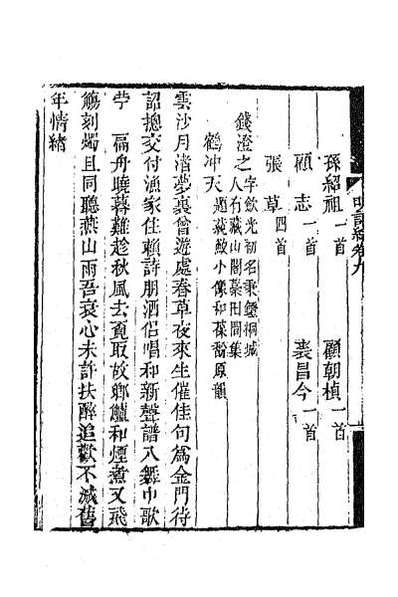 明詞綜卷九
孫紹祖一首　　顧朝楨一首
顧　志一首　　裘昌今一首
張　草四首
錢澄之字飲光初名秉鐙桐城
人有藏山閣藁田間集
鶴冲天題菽敵小像和葆馚原韻
雲沙月渚夢裏曾遊處春草夜來生催佳句為金門待
詔摠交付漁家住賴詩朋酒侶唱和新聲譜入舞巾歌
苧　扁舟曉暮難趁秋風去直取故鄉鱸和煙煮又飛
觴刻燭且同聽燕山雨吾衰心未許扶醉追歡不減舊
年情緒